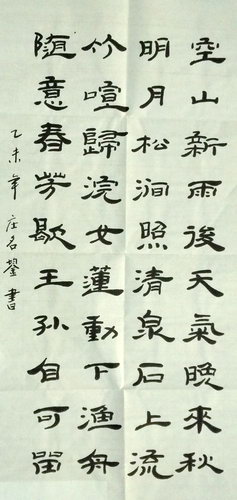 空山新雨後天氣晚來秋
明月松澗照清泉石上流
竹喧歸浣女蓮動下漁舟
随意春芳歇王孙自可留
乙未年 庄名 書